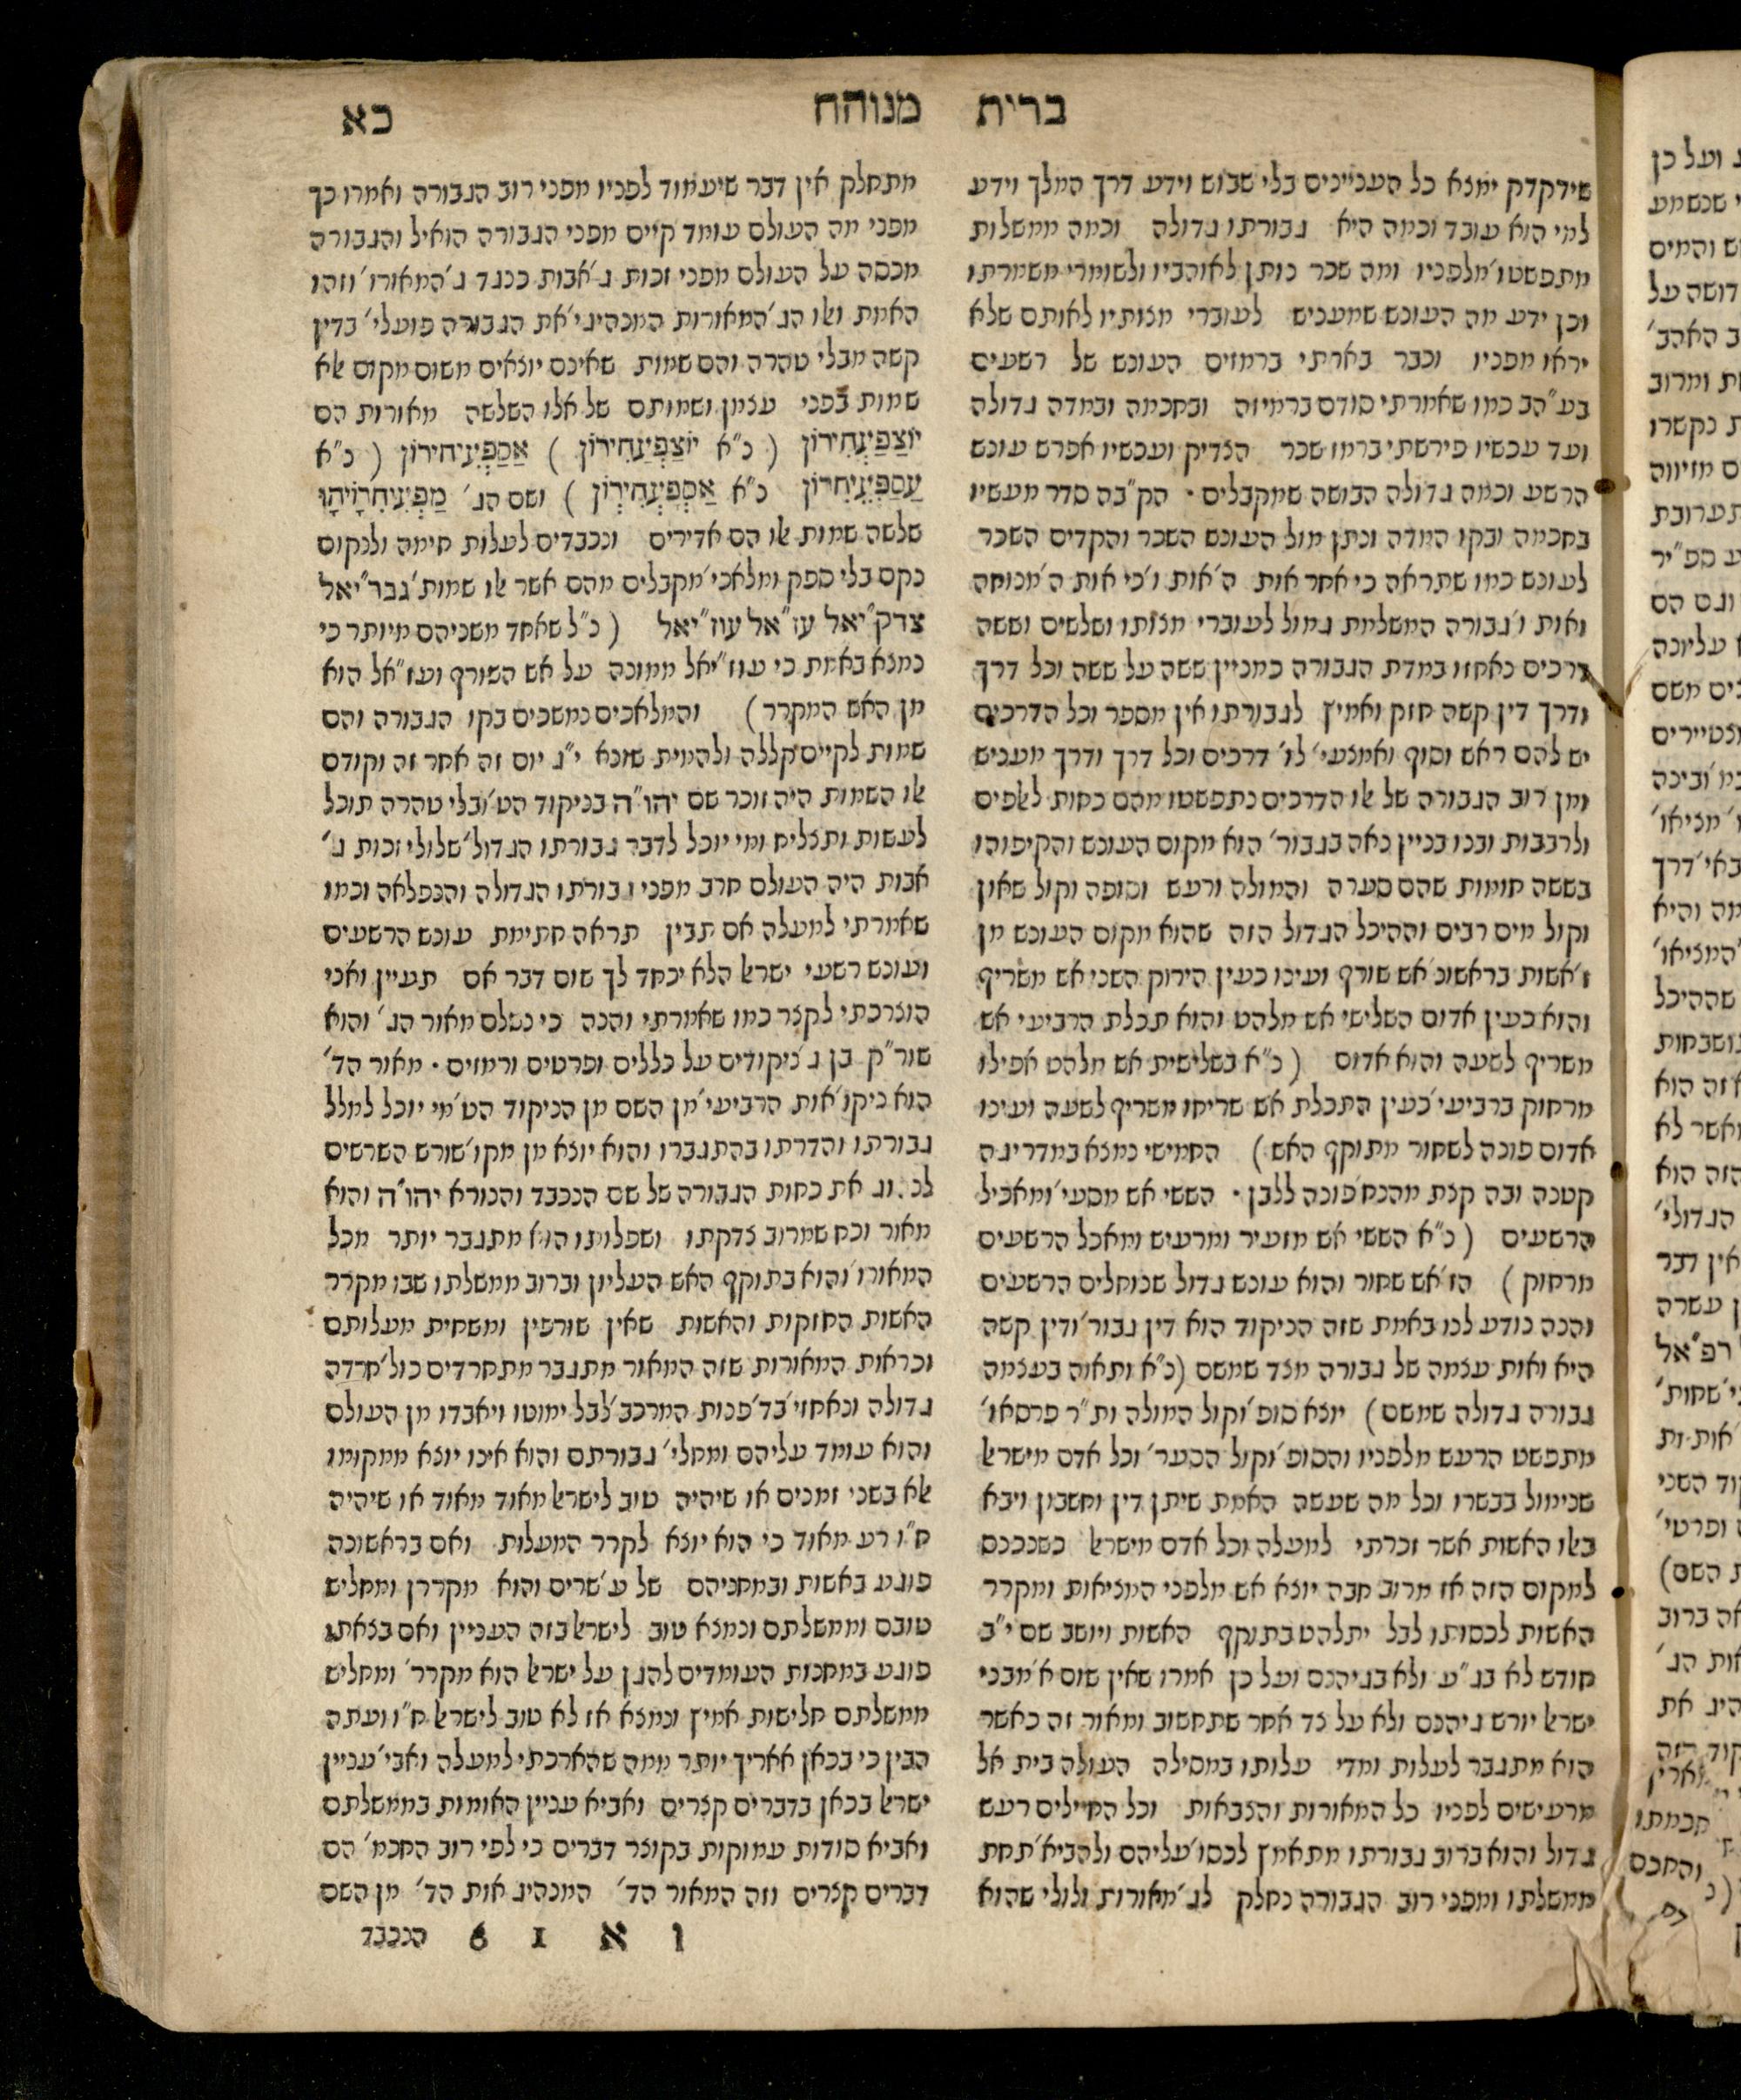 ברית מנוחה כא
שידקדק ימצא כל העניינים בלי שבוש וידע דרך המלך וידע
למי הוא עובד וכמה היא גבורתו גדולה וכמה ממשלות
מתפשטו׳ מלפניו ומה שכר נותן לאוהביו ולשומרי משמרתו
וכן ידע מה העונש שמעניש לעוברי מצותיו לאותם שלא
יראו מפניו וכבר בארתי ברמזים העונש של רשעים
בע״הב כמו שאמרתי סודם ברמיזה ובחכמה ובמדה גדולה
ועד עכשיו פירשתי ברמז שכר הצדיק ועכשיו אפרש עונש
הרשע וכמה גדולה הבושה שמקבלים · הק״בה סדר מעשיו
בחכמה ובקו המדה ונתן מול העונש השכר והקדים השכר
לעונש כמו שתראה כי אחר אות ה׳ אות ו׳ כי אות ה׳ מנוחה
ואות ו׳ גבורה המשלמת גמול לעוברי מצותו ושלשים וששה
דרכים נאחזו במדת הגבורה כמניין ששה על ששה וכל דרך
ודרך דין קשה חזק ואמיץ לגבורתו אין מספר וכל הדרכים
יש להם ראש וסוף ואמצעי׳ לו׳ דרכים וכל דרך ודרך מעניש
ומן רוב הגבורה של אלו הדרכים נתפשטו מהם כחות לאלפים
ולרבבות ובנו בניין נאה בגבור׳ הוא מקום העונש והקיפוהו
בששה חומות שהם סערה והמולה ורעש וסופה וקול שאון
וקול מים רבים וההיכל הגדול הזה שהוא מקום העונש מן
ו׳ אשות בראשונ׳ אש שורף ועינו כעין הירוק השני אש משריף
והוא כעין אדום השלישי אש מלהט והוא תכלת הרביעי אש
משריף לשעה והוא אדום ( נ״א בשלישית אש מלהט אפילו
מרחוק ברביעי׳ כעין התכלת אש שריחו משריף לשעה ועינו
אדום פונה לשחור מתוקף האש ) החמישי נמצא במדריגה
קטנה ובה קצת מהכח׳ פונה ללבן · הששי אש מסעי׳ ומאכיל
הרשעים ( נ״א הששי אש מזעיר ומרעיש ומאכל הרשעים
מרחוק ) הז׳ אש שחור והוא עונש גדול שנוחלים הרשעים
והנה נודע לנו באמת שזה הניקוד הוא דין גבור׳ ודין קשה
היא ואות עצמה של גבורה מצד שמשם (נ״א ותאוה בעצמה
גבורה גדולה שמשם) יוצא סופ׳ וקול המולה ות״ר פרסאו׳
מתפשט הרעש מלפניו והסופ׳ וקול הסער׳ וכל אדם מישראל
שנימול בבשרו וכל מה שעשה האמת שיתן דין וחשבון ויבא
באלו האשות אשר זכרתי למעלה וכל אדם מישראל כשנכנס
למקום הזה אז מרוב חבה יוצא אש מלפני המציאות ומקרר
האשות לכסותו לבל יתלהט בתוקף האשות ויושב שם י״ב
חודש לא בג״ע ולא בגיהנם ועל כן אמרו שאין שום א׳ מבני
ישראל יורש גיהנם ולא על צד אחר שתחשוב ומאור זה כאשר
הוא מתגבר לעלות ומדי עלותו במסילה העולה בית אל
מרעישים לפניו כל המאורות והצבאות וכל החיילים רעש
גדול והוא ברוב גבורתו מתאמץ לכסו׳ עליהם ולהביא׳ תחת
ממשלתו ומפני רוב הגבורה נחלק לג׳ מאורות ולולי שהוא
מתחלק אין דבר שיעמוד לפניו מפני רוב הגבורה ואמרו כך
מפני מה העולם עומד קיים מפני הגבורה הואיל והגבורה
מכסה על העולם מפני זכות ג׳ אבות כנגד ג׳ המאורו׳ וזהו
האמת ואלו הג׳ המאורות המנהיגי׳ את הגבורה פועלי׳ בדין
קשה מבלי טהרה והם שמות שאינם יוצאים משום מקום אלא
שמות בפני עצמן ושמותם של אלו השלשה מאורות הם
יוֹצַפַיְנְחִירוֹן ( נ״א יוֹצַפְיַנְחִירוֹן ) אַסַפְיְעִיחִירוֹן ( נ״א
עַסַפִיְעִיחִרוֹן נ״א אַסְפִיְעְחִירְוֹן ) ושם הג׳ מַפְיְנִיחִרָוֹיהָוּ
שלשה שמות אלו הם אדירים ונכבדים לעלות חימה ולנקום
נקם בלי ספק ומלאכי׳ מקבלים מהם אשר אלו שמות׳ גבר״יאל
צדק״יאל עז״אל עוז״יאל ( נ״ל שאחד משניהם מיותר כי
נמצא באמת כי עוז״יאל ממונה על אש השורף ועז״אל הוא
מן האש המקרר ) והמלאכים נמשכים בקו הגבורה והם
שמות לקיים קללה ולהמית שונא י״ג יום זה אחר זה וקודם
אלו השמות היה זוכר שם יהו״ה בניקוד הט׳ ובלי טהרה תוכל
לעשות ותצליח ומי יוכל לדבר גבורתו הגדול׳ שלולי זכות ג׳
אבות היה העולם חרב מפני גבורתו הגדולה והנפלאה וכמו
שאמרתי למעלה אם תבין תראה חתימת עונש הרשעים
ועונש רשעי ישראל הלא יכחד לך שום דבר אם תעיין ואני
הוצרכתי לקצר כמו שאמרתי והנה כי נשלם מאור הג׳ והוא
שור״ק בן ג׳ ניקודים על כללים ופרטים ורמזים · מאור הד׳
הוא ניקו׳ אות הרביעי׳ מן השם מן הניקוד הט׳ מי יוכל למלל
גבורתו והדרתו בהתגברו והוא יוצא מן מקו׳ שורש השרשים
את כחות הגבורה של שם הנכבד והנורא יהו״ה והוא
מאור וכח שמרוב צדקתו ושפלותו הוא מתגבר יותר מכל
המאורו׳ והוא בתוקף האש העליון וברוב ממשלתו שבו מקרר
האשות החזקות והאשות שאין שורפין ומשחית מעלותם
וכראות המאורות שזה המאור מתגבר מתחרדים כול׳ חרדה
גדולה ונאחזי׳ בד׳ פנות המרכב׳ לבל ימוטו ויאבדו מן העולם
והוא עומד עליהם ומחלי׳ גבורתם והוא אינו יוצא ממקומו
אלא בשני זמנים או שיהיה טוב לישראל מאוד מאוד או שיהיה
ח״ו רע מאוד כי הוא יוצא לקרר המעלות ואם בראשונה
פוגע באשות ובמחניהם של ע׳ שרים והוא מקררן ומחליש
טובם וממשלתם ונמצא טוב לישראל בזה העניין ואם בצאתו
פוגע במחנות העומדים להגן על ישראל הוא מקרר׳ ומחליש
ממשלתם חלישות אמיץ ונמצא אז לא טוב לישראל ח״ו ועתה
הבין כי בכאן אאריך יותר ממה שהארכתי למעלה ואבי׳ עניין
ישראל בכאן בדברים קצרים ואביא עניין האומות בממשלתם
ואביא סודות עמוקות בקוצר דברים כי לפי רוב החכמ׳ הם
דברים קצרים וזה המאור הד׳ המנהיג אות הד׳ מן השם
ו א 1 6 הנכבד